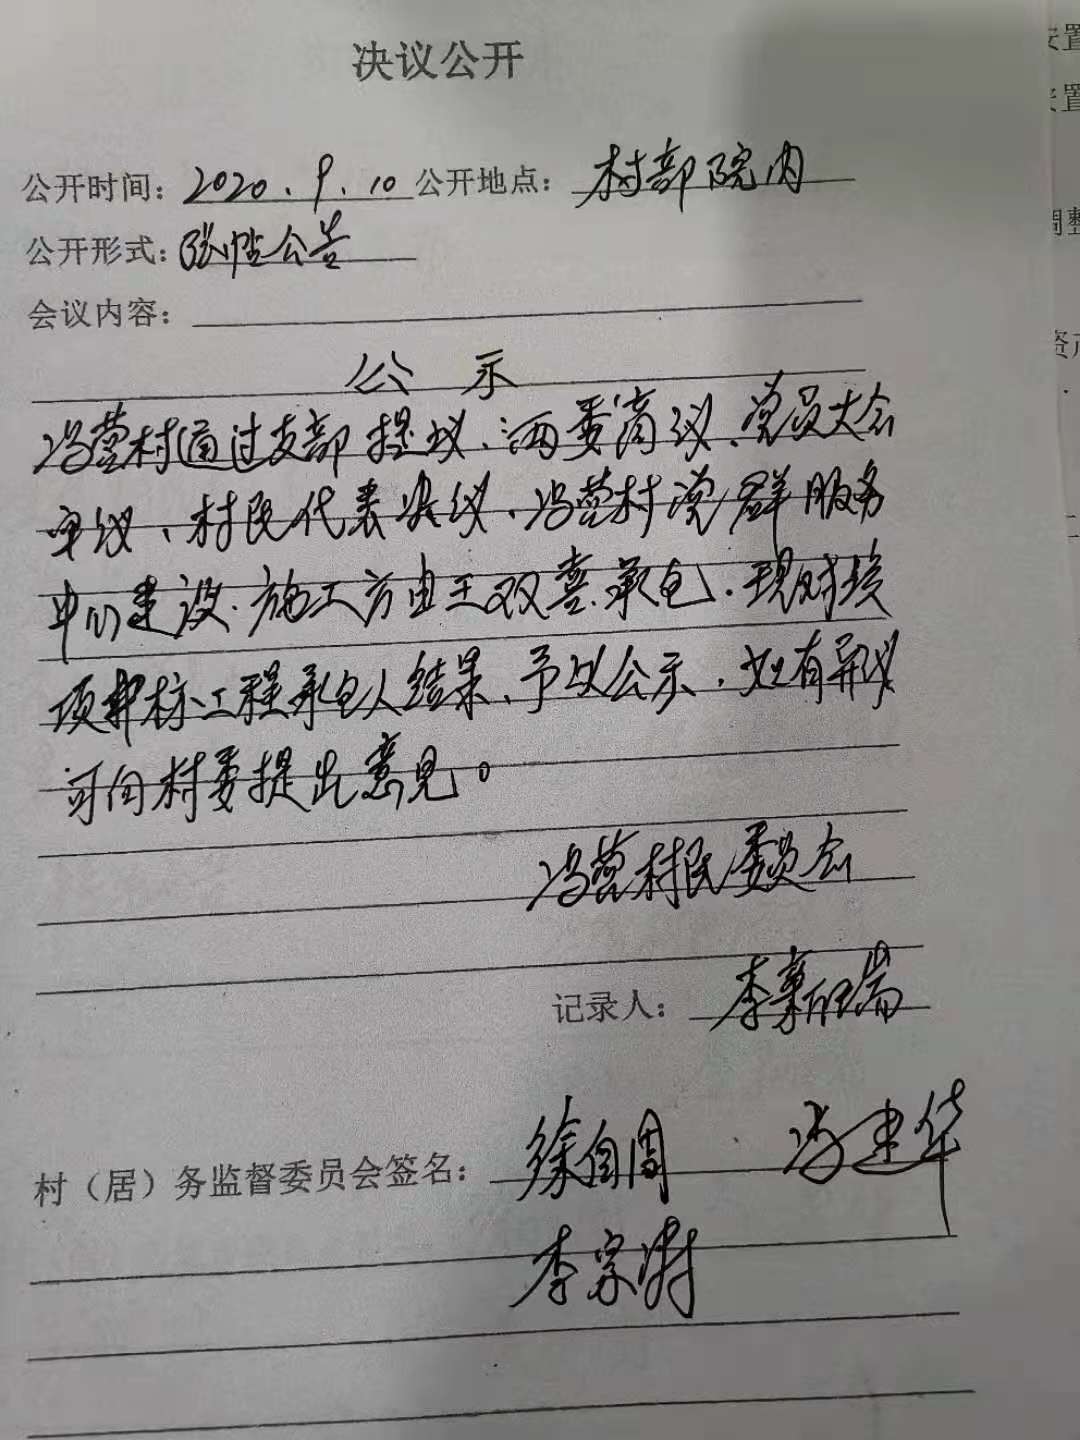 决议公开
公开时间：2020.9.10 公开地点：村部院内
公开形式：张贴公告
会议内容：
公示
冯营村通过支部提议、两委商议、党员大会
审议、村民代表决议、冯营村党群服务
中心建设、施工方由王双喜承包.现对该
项招标工程承包人结果、予以公示.如有异议
可向村委提出意见。
冯营村民委员会
记录人：李
村（居）务监督委员会签名：徐自周 冯建华
李宗
安置
安置
调整